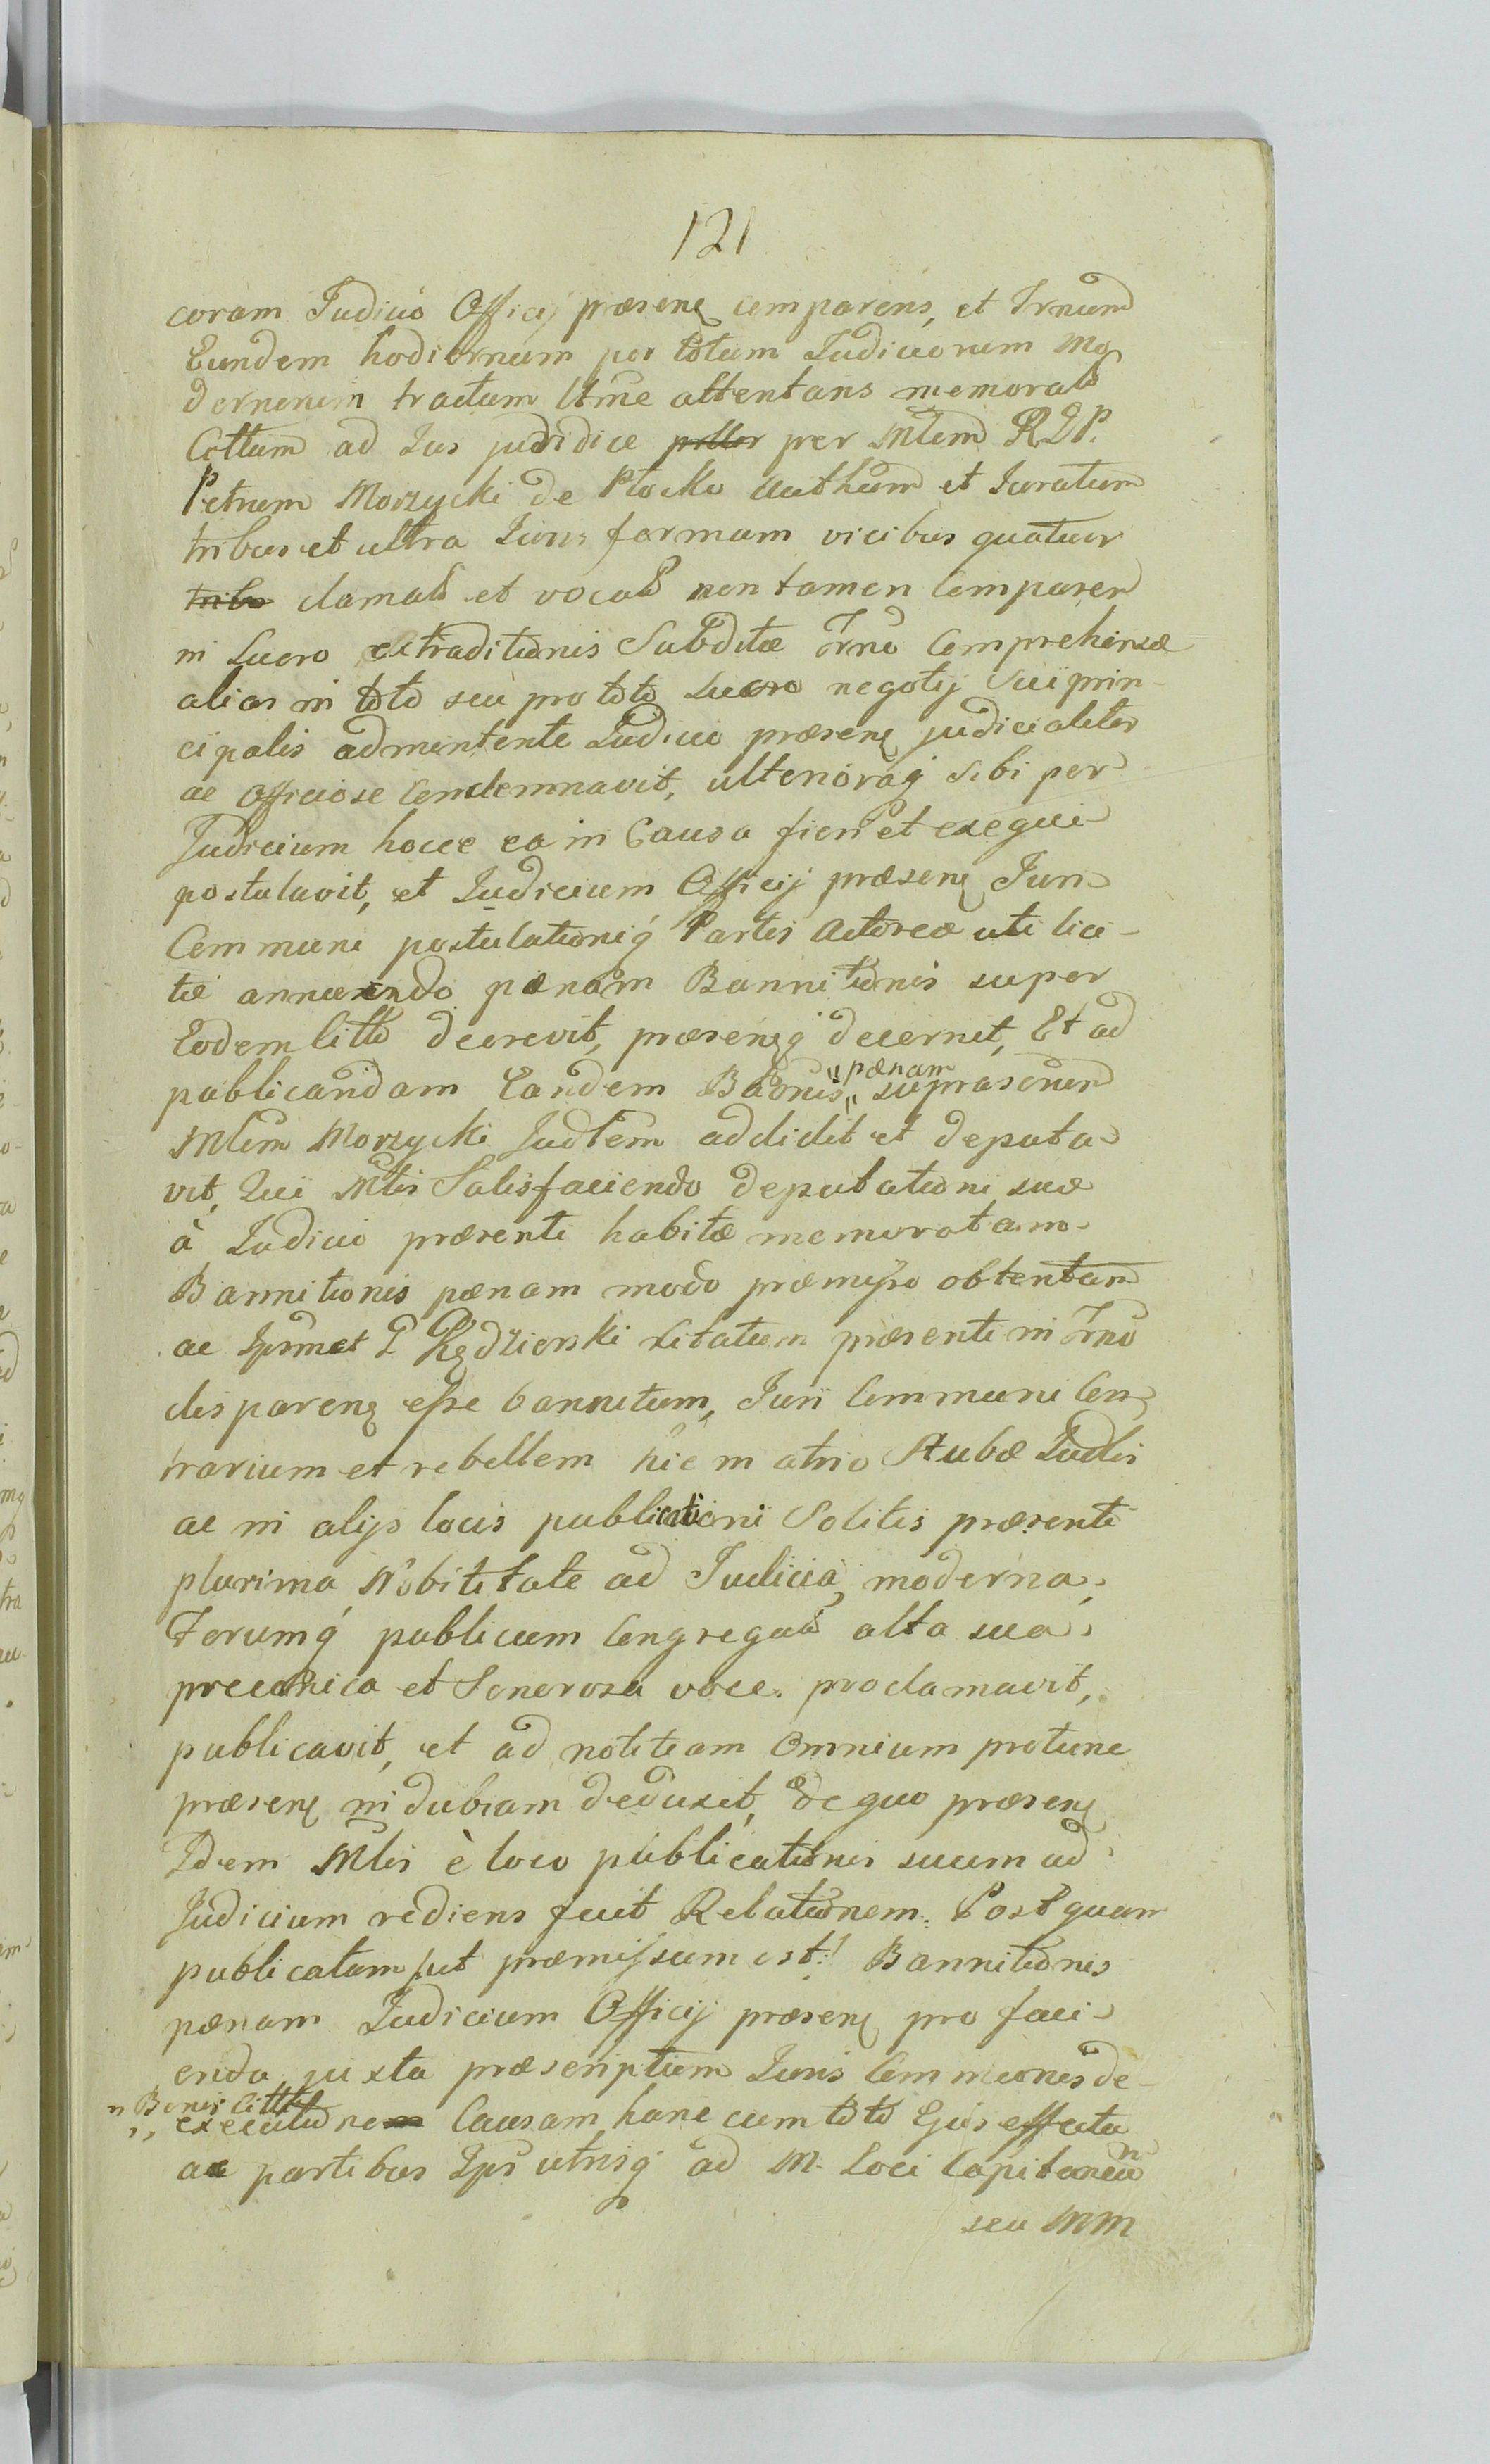 121
coram Judicio Officij præsenȩ comparens, et Trnum
Eundem hodiernum per totum Judiciorum Mo
dernorum tractum ltme attentans memorat
Cittum ad Jus juridice per Mlem R. D. P.
Petrum Morzycki de Płocko authum et Juratum
tribus et ultra Juris formam vicibus quatuor
tribo clamat et vocat non tamen Comparen
in Lucro extraditionis Subditæ Trno Comprehensæ
alias in toto seu pro toto Lucro negotij Sui prin-
cipalis admittente Judicio præsenȩ judicialiter
ac Officiose Condemnavit, ulterioraq̃ Sibi per
Judicium hocce ea in Causa fieri et exequi
postulavit, et Judicium Officij præsenȩ Juri
Communi postulationiq̃ Partis Actoreæ uti lici-
tæ annuendo pænam Bannitionis super
Eodem Citto decrevit, præsenȩq̃ decernit, Et ad
publicandam Eandem Baonis „pænam„ suprascrium
Mlem Morzycki Judlem addidit et deputa
vit, Qui Mlis Satisfaciendo deputationi suæ
à Judicio præsenti habitæ memoratam
Bannitionis pænam modo præmisso obtentam
ac Ipsmet P Kędzierski citatum præsenti in Trno
disparenȩ esse bannitum, Juri Communi Con
trarium et rebellem hic in atrio Stubæ Judlis
ac in alijs locis publicationi Solitis præsenti
plurima Nobilitate ad Judicia moderna,
Forumq̃ publicum Congregat alta sua
preconica et Sonorosa voce proclamavit,
publicavit, et ad notitiam Omnium protunc
præsenȩ indubiam deduxit, de quo præsenȩ
Idem Mlis è loco publicationis suum ad
Judicium rediens fecit Relationem. Postquam
publicatam /ut præmissum est:/ Bannitionis
pænam Judicium Officij præsenȩ pro faci
enda juxta præscriptum Juris Communis de
„ Bonis Citti
„ executione Causam hanc cum toto Ejus effectu
ac partibus Ips utrisq̃ ad M. Loci Capitaneum
seu MM